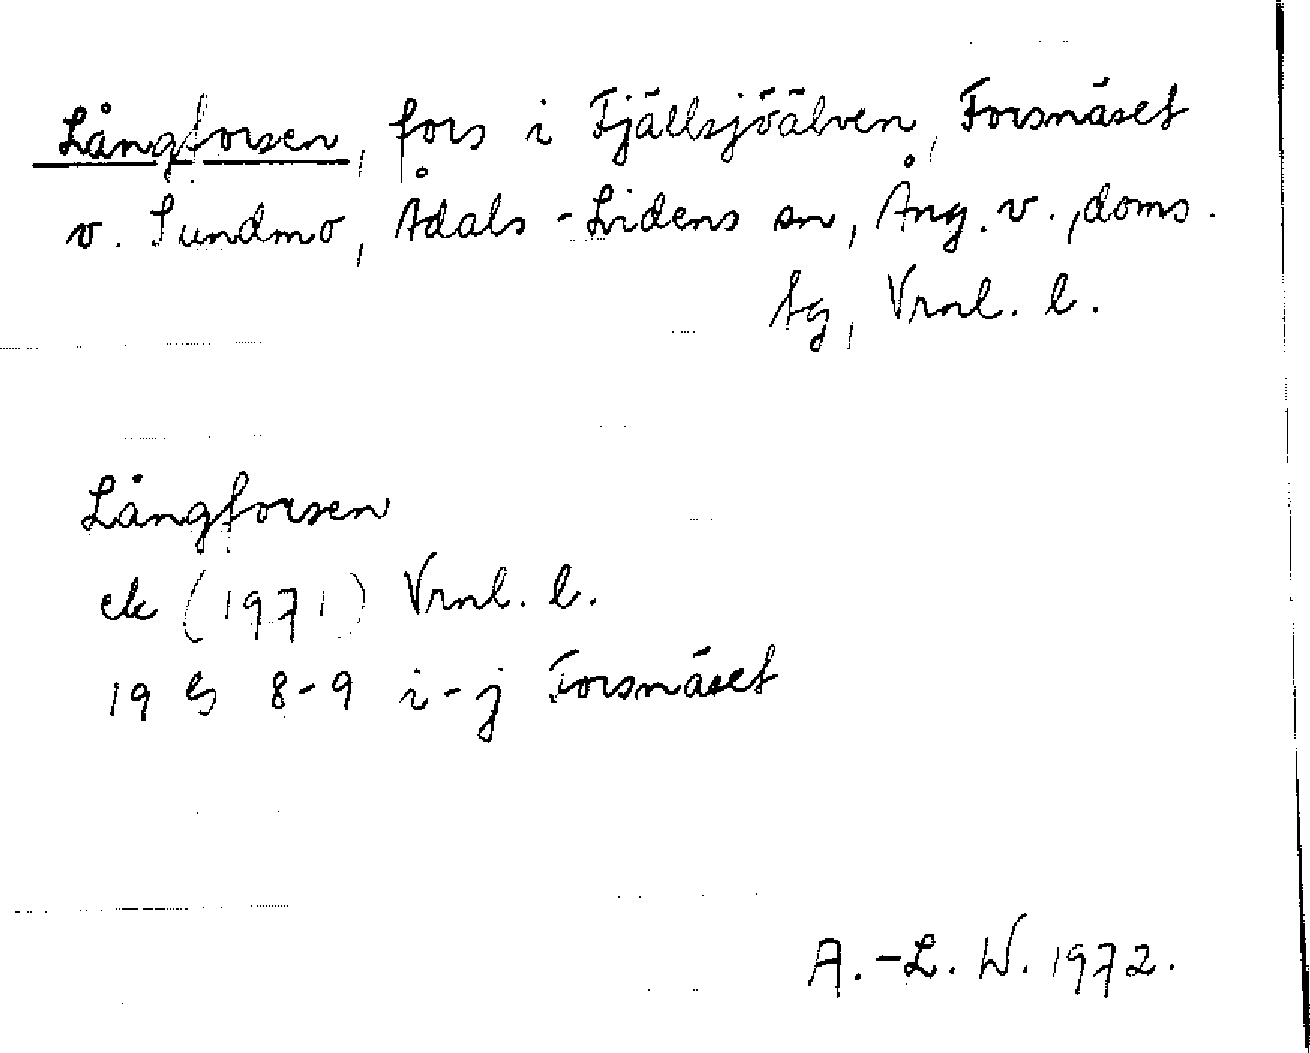 Långforsen, fors i Fjällsjöälven, Forsnäset
v. Sundmo, Ådals-Lidens sn, Ång. v., doms.
tg, Vrnl. l.
Långforsen
ek (1971) Vrnl. l.
19 G 8-9 i-j Forsnäset
A.-L. W. 1972.